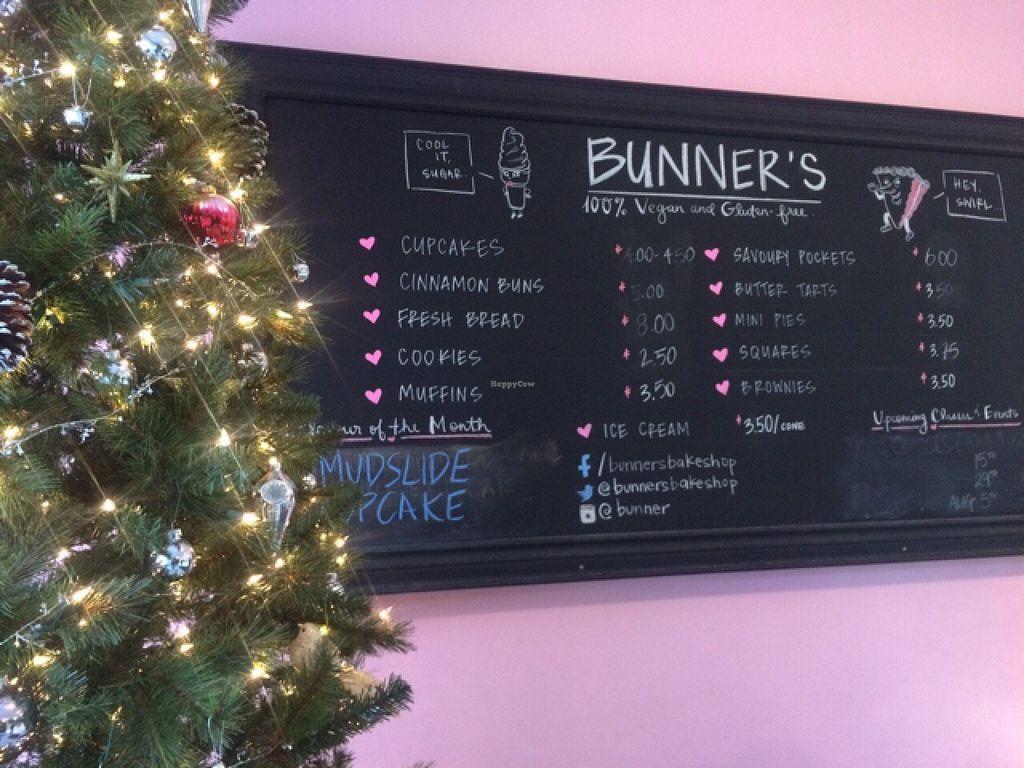 COOL
IT,
SUGAR.
BUNNER'S
100% Vegan and Gluten-free.
HEY,
SWIRL.
CUPCAKES $4.00-4.50
CINNAMON BUNS $5.00
FRESH BREAD $8.00
COOKIES $2.50
MUFFINS $3.50
SAVOURY POCKETS $6.00
BUTTER TARTS $3.50
MINI PIES $3.50
SQUARES $3.75
BROWNIES $3.50
ICE CREAM $3.50/CONE
of the Month
MUDSLIDE
CUPCAKE
/bunnersbakeshop
@bunnersbakeshop
@bunner
Upcoming Classes & Events
15TH
29TH
AUG 5TH
HappyCow